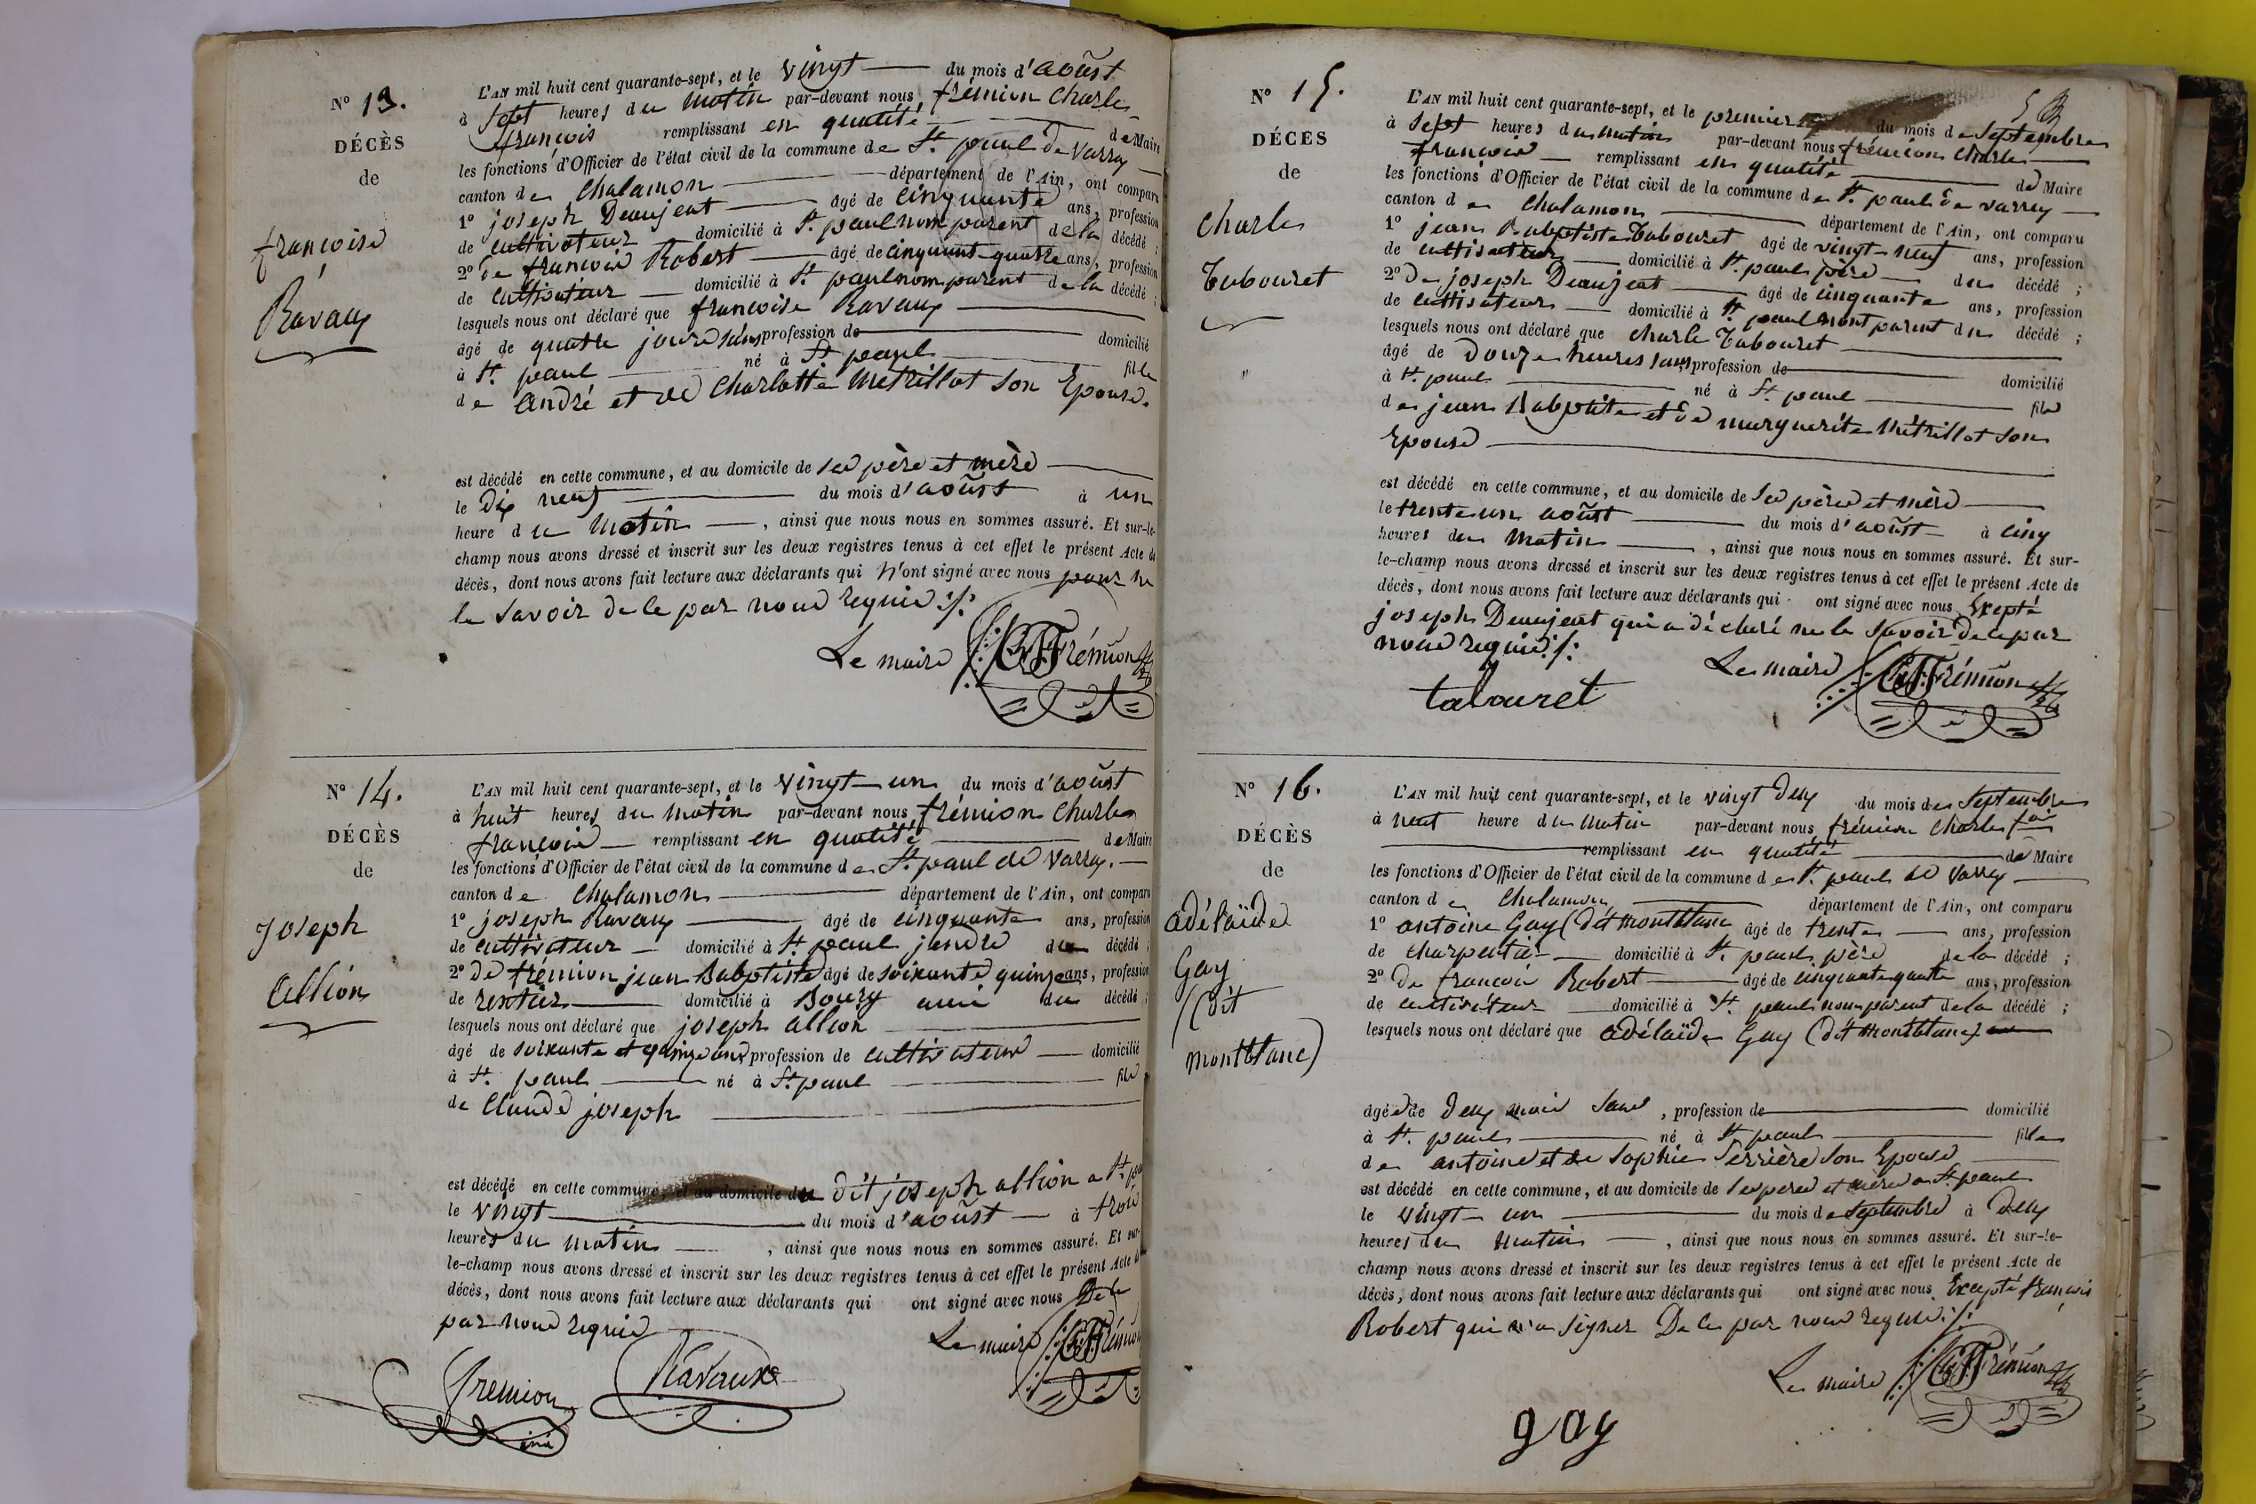 N° 13.
DÉCÈS
de
françoise
Ravaux
L'AN mil huit cent quarante-sept, et le vingt du mois d'aoûst
à sept heures du matin par-devant nous frémion Charles
françois remplissant en qualité de Maire
les fonctions d'Officier de l'état civil de la commune de St. paul de Varax
canton de Chalamon département de l'Ain, ont comparu
1° joseph Deaujeat âgé de cinquante ans, profession
de cultivateur domicilié à St. paul non parent de la décédé ;
2° De françois Robert âgé de cinquante quatre ans, profession
de cultivateur domicilié à St. paul non parent de la décédé ;
lesquels nous ont déclaré que françoise Ravaux
âgé de quatre jours sans profession de domicilié
à St. paul né à St paul fille
de andré et de Charlotte Metrillot son Epouse.
est décédé en cette commune, et au domicile de ses père et mère
le dix neuf du mois d'aoûst à un
heure du matin , ainsi que nous nous en sommes assuré. Et sur-le-
champ nous avons dressé et inscrit sur les deux registres tenus à cet effet le présent Acte de
décès, dont nous avons fait lecture aux déclarants qui n'ont signé avec nous pour ne
le savoir de ce par nous requis ./.
Le maire Frémion
N° 14.
DÉCÈS
de
Joseph
allion
L'AN mil huit cent quarante-sept, et le vingt-un du mois d'aoûst
à huit heures du matin par-devant nous frémion Charles
françois remplissant en qualité de Maire
les fonctions d'Officier de l'état civil de la commune de St. paul de Varax.
canton de Chalamon département de l'Ain, ont comparu
1° joseph Ravaux âgé de cinquante ans, profession
de cultivateur domicilié à St. paul jendre du décédé ;
2° De frémion jean Babptiste âgé de soixante quinze ans, profession
de rentier domicilié à Bourg ami du décédé ;
lesquels nous ont déclaré que joseph allion
âgé de soixante et quinze ans profession de cultivateur domicilié
à St. paul né à St paul fils
de Claude joseph
est décédé en cette commune, et au domicile du dit joseph allion a St. paul
le vingt du mois d'aoûst à trois
heures du matin , ainsi que nous nous en sommes assuré. Et sur-
le-champ nous avons dressé et inscrit sur les deux registres tenus à cet effet le présent Acte de
décès, dont nous avons fait lecture aux déclarants qui ont signé avec nous De ce
par nous requis
Le maire Frémion
fremion Ravaux
N° 15.
DÉCÈS
de
Charles
Tabouret
L'AN mil huit cent quarante-sept, et le premier du mois de Septembre
à sept heures du matin par-devant nous frémion Charles
françois remplissant en qualité de Maire
les fonctions d'Officier de l'état civil de la commune de St. paul de varax
canton de Chalamon département de l'Ain, ont comparu
1° jean Babptiste Tabouret âgé de vingt-neuf ans, profession
de cultivateur domicilié à St. paul père du décédé ;
2° De joseph Deaujeat âgé de cinquante ans, profession
de cultivateur domicilié à St. paul non parent du décédé ;
lesquels nous ont déclaré que charle Tabouret
âgé de douze heures sans profession de domicilié
à St. paul né à St. paul fils
de jean Babptiste et de marguerite Métrillot son
Epouse
est décédé en cette commune, et au domicile de ses père et mère
le trente un aoûst du mois d'aoûst à cinq
heures du matin , ainsi que nous nous en sommes assuré. Et sur-
le-champ nous avons dressé et inscrit sur les deux registres tenus à cet effet le présent Acte de
décès, dont nous avons fait lecture aux déclarants qui ont signé avec nous Excepté
joseph Deaujeat qui a déclaré ne le savoir de ce par
nous requis ./.
Le maire Frémion
tabouret
N° 16.
DÉCÈS
de
adélaïde
Gay
(dit
montblanc)
L'AN mil huit cent quarante-sept, et le vingt deux du mois de Septembre
à neuf heure du matin par-devant nous frémion Charles fois
remplissant en qualité de Maire
les fonctions d'Officier de l'état civil de la commune de St. paul de Varax
canton de Chalamon département de l'Ain, ont comparu
1° antoine Gay (dit montblanc âgé de trente ans, profession
de charpentier domicilié à St. paul père de la décédé ;
2° De françois Robert âgé de cinquante quatre ans, profession
de cultivateur domicilié à St. paul non parent de la décédé ;
lesquels nous ont déclaré que adélaïde Gay (dit montblanc)
âgée de deux mois sans , profession de domicilié
à St. paul né à St paul fille
de antoine et de Sophie Serrière son Epouse
est décédé en cette commune, et au domicile de ses père et mère a St. paul
le vingt un du mois de Septembre à deux
heures du matin , ainsi que nous nous en sommes assuré. Et sur-le-
champ nous avons dressé et inscrit sur les deux registres tenus à cet effet le présent Acte de
décès, dont nous avons fait lecture aux déclarants qui ont signé avec nous Excepté françois
Robert qui n'a signer De ce par nous requis ./.
Le maire Frémion
gay